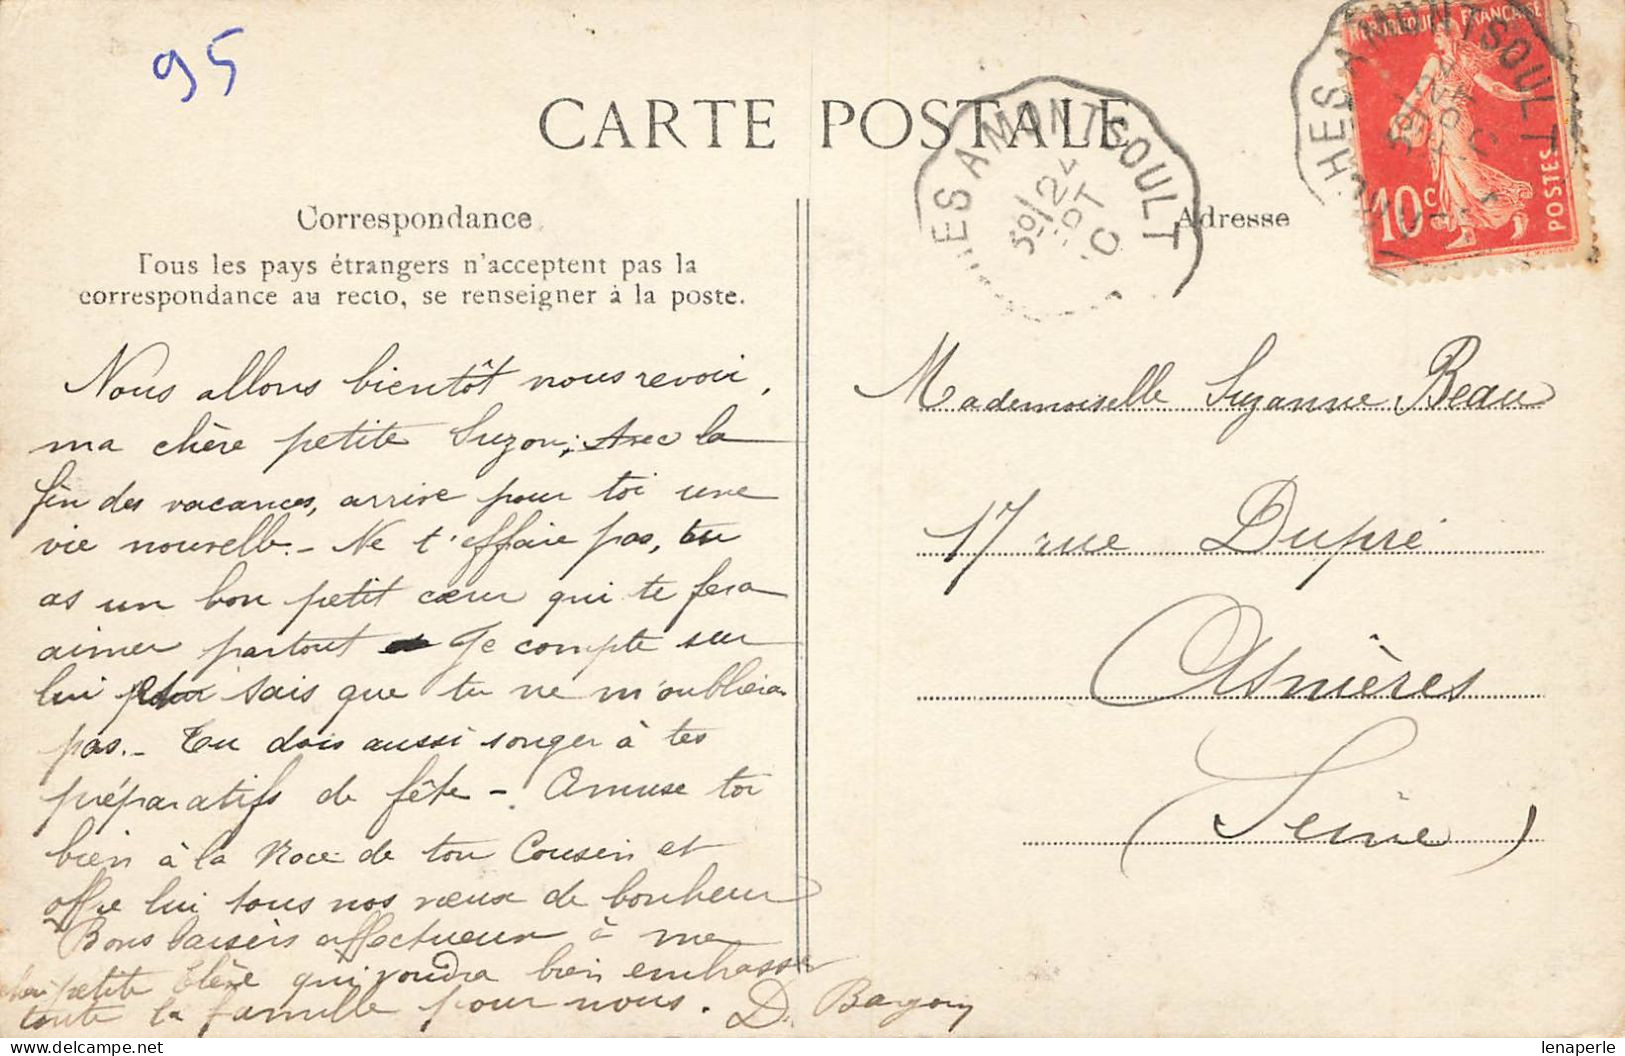 95
CARTE POSTALE
RÉPUBLIQUE FRANÇAISE
10c
POSTES
HES A MONTSOULT
ES A MONTSOULT
24
Correspondance
Adresse
Tous les pays étrangers n'acceptent pas la
correspondance au recto, se renseigner à la poste.
Nous allons bientôt nous revoir,
ma chère petite Suzon, Avec la
fin des vacances, arrive pour toi une
vie nouvelle. - Ne t'effraie pas, tu
as un bon petit cœur qui te fera
aimer partout Je compte sur
lui sais que tu ne m'oublieras
pas. - Tu dois aussi songer à tes
préparatifs de fête - Amuse toi
bien à la Noce de ton Cousin et
offre lui tous nos vœux de bonheur
Bons baisers affectueux à ma
petite Elève qui voudra bien embrasser
toute la famille pour nous. D.
Mademoiselle Suzanne Beau
17 rue Dupré
Asnières
(Seine)
lenaperle